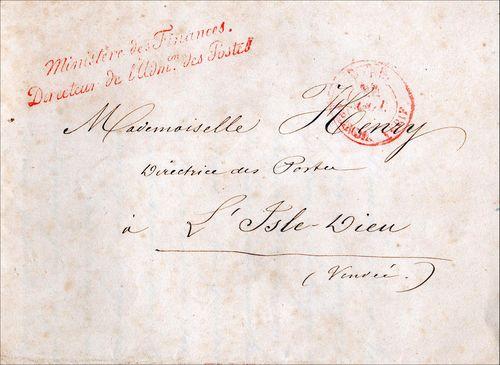 Ministère des Finances.
Directeur de l'Adm.on des Postes
Mademoiselle Henry
Directrice des Postes
à L'Isle-Dieu
(Vendée.)